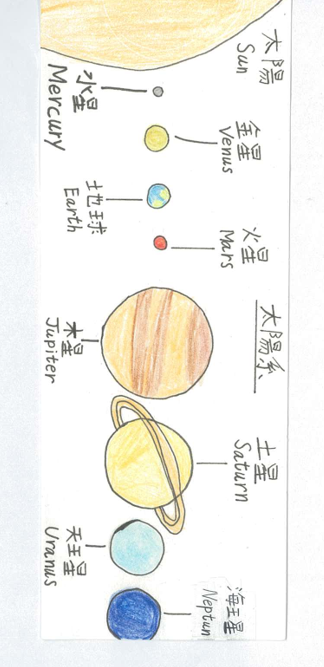 太陽
Sun
水星
Mercury
金星
Venus
地球
Earth
火星
Mars
太陽系
木星
Jupiter
土星
Saturn
天王星
Uranus
海王星
Neptun